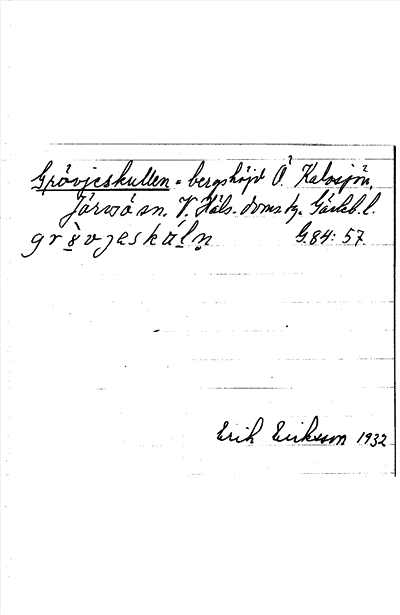 Grövjeskullen = bergshöjd Ö. Kalvsjön,
Järvsö sn. V. Häls. doms.g. Gävleb. l.
G.84: 57.
Erik Erikson 1932